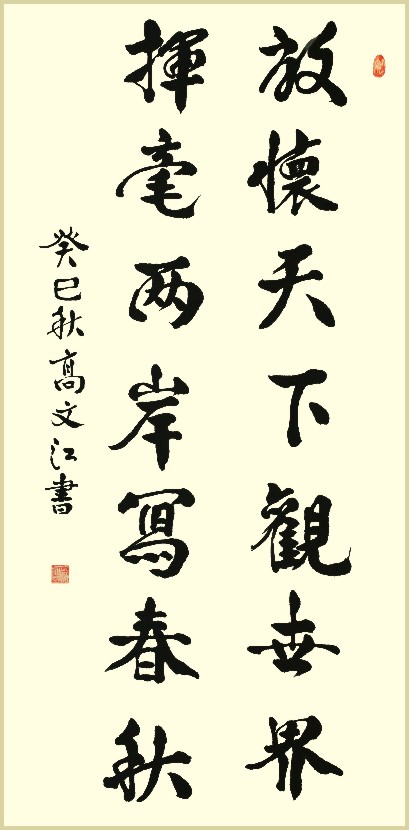 放懷天下觀世界
揮毫两岸寫春秋
癸巳秋高文江書